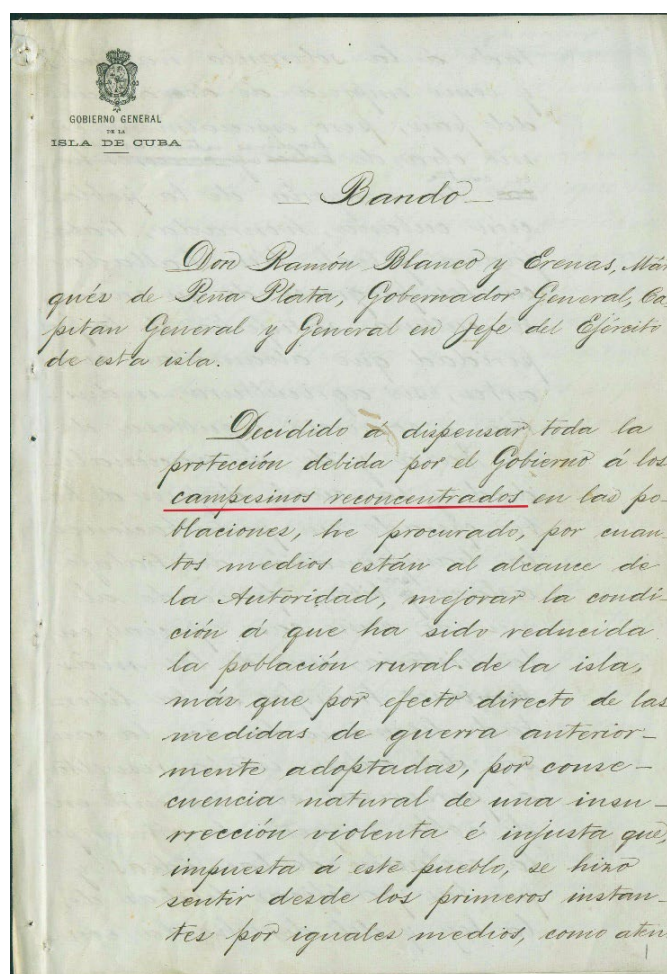 GOBIERNO GENERAL
DE LA
ISLA DE CUBA
Bando
Don Ramón Blanco y Erenas, Már
qués de Peña Plata, Gobernador General, Ca
pitan General y General en Jefe del Ejército
de esta isla.
Decidido á dispensar toda la
protección debida por el Gobierno á los
campesinos reconcentrados en las po-
blaciones, he procurado, por cuan-
tos medios están al alcance de
la Autoridad, mejorar la condi-
ción á que ha sido reducida
la población rural de la isla,
más que por efecto directo de las
medidas de guerra anterior-
mente adoptadas, por conse-
cuencia natural de una insu-
rrección violenta é injusta que,
impuesta á este pueblo, se hizo
sentir desde los primeros instan-
tes por iguales medios, como aten